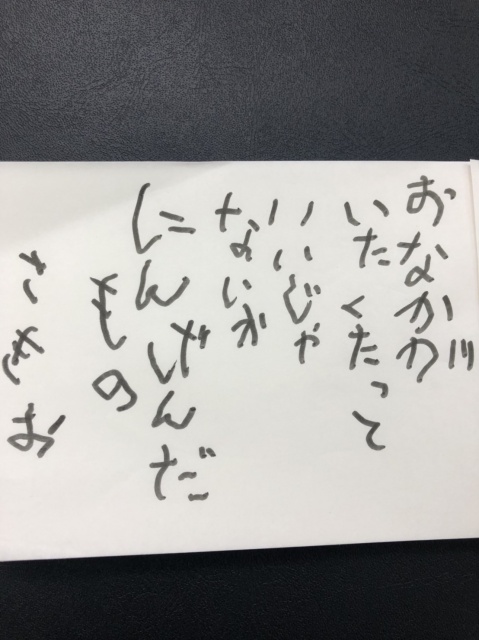 おなかが
いたくたって
いいじゃ
ないか
にんげんだ
もの
さきお